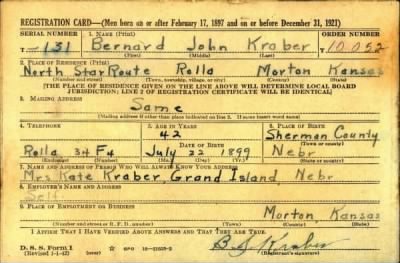 REGISTRATION CARD—(Men born on or after February 17, 1897 and on or before December 31, 1921)
SERIAL NUMBER 1. NAME (Print) ORDER NUMBER
T-131 Bernard John Kraber T 10,052
2. PLACE OF RESIDENCE (Print)
North Star Route Rolla Morton Kansas
(Number and street) (Town, township, village, or city) (County) (State)
[THE PLACE OF RESIDENCE GIVEN ON THE LINE ABOVE WILL DETERMINE LOCAL BOARD
JURISDICTION; LINE 2 OF REGISTRATION CERTIFICATE WILL BE IDENTICAL]
3. MAILING ADDRESS
Same
[Mailing address if other than place indicated on line 2. If same insert word same]
4. TELEPHONE 5. AGE IN YEARS 6. PLACE OF BIRTH
42 Sherman County
DATE OF BIRTH (Town or county)
Rolla 34 F4 July 22 1899 Nebr
(Exchange) (Number) (Mo.) (Day) (Yr.) (State or country)
7. NAME AND ADDRESS OF PERSON WHO WILL ALWAYS KNOW YOUR ADDRESS
Mrs Kate Kraber, Grand Island, Nebr
8. EMPLOYER'S NAME AND ADDRESS
Self
9. PLACE OF EMPLOYMENT OR BUSINESS
Morton, Kansas
(Number and street or R. F. D. number) (Town) (County) (State)
I AFFIRM THAT I HAVE VERIFIED ABOVE ANSWERS AND THAT THEY ARE TRUE.
D. S. S. Form 1
(Revised 1-1-42) GPO B. J. Kraber